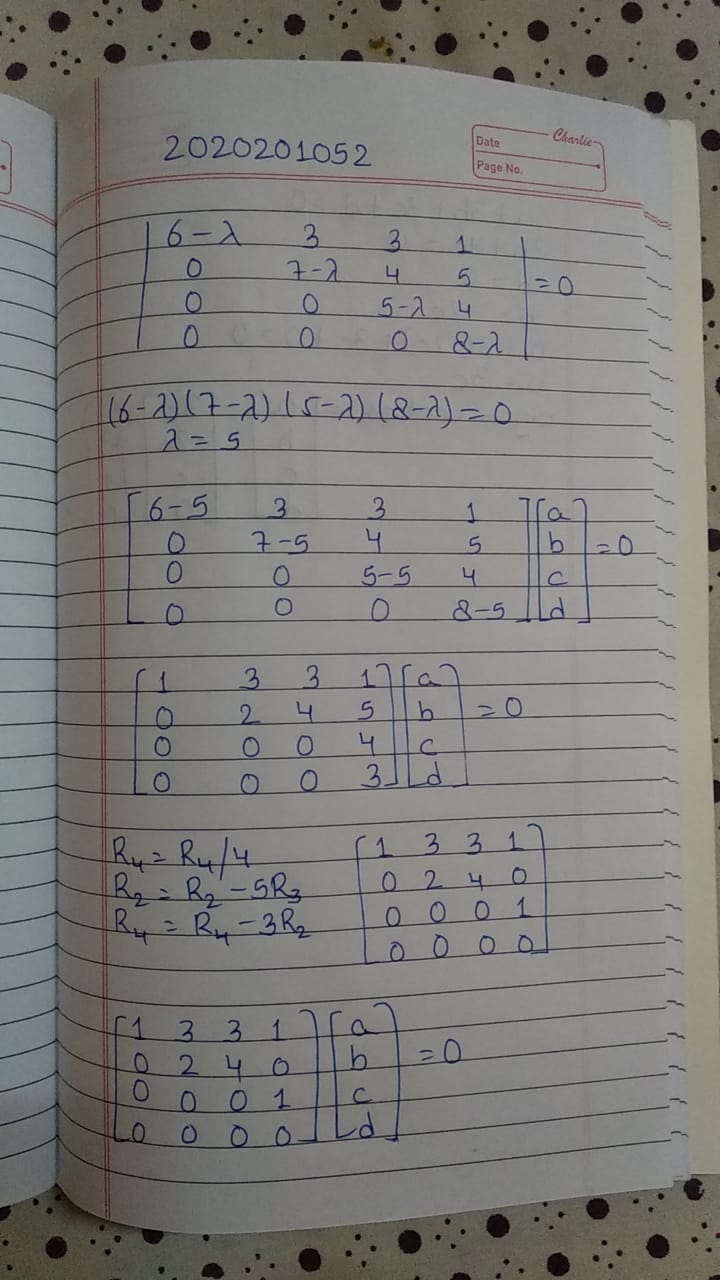 2020201052
Charlie
Date
Page No.
6-λ 3 3 1
0 7-λ 4 5 =0
0 0 5-λ 4
0 0 0 8-λ
(6-λ)(7-λ)(5-λ)(8-λ)=0
λ=5
6-5 3 3 1 a
0 7-5 4 5 b =0
0 0 5-5 4 c
0 0 0 8-5 d
1 3 3 1 a
0 2 4 5 b =0
0 0 0 4 c
0 0 0 3 d
R₄=R₄/4
R₂=R₂-5R₃
R₄=R₄-3R₂
1 3 3 1
0 2 4 0
0 0 0 1
0 0 0 0
1 3 3 1 a
0 2 4 0 b =0
0 0 0 1 c
0 0 0 0 d